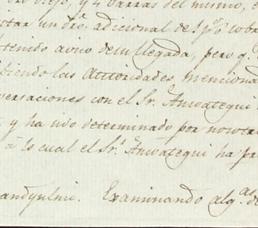 y 4 barras del mismo, e
un dro. adicional de 1 p%o sobr
tenido aviso de su llegada, pero q.
biendo las Autoridades menciona
versaciones con el Sr. Amoategui
y ha sido determinado por nosotr
a lo cual el Sr. Amoategui ha pr
Examinando alg.